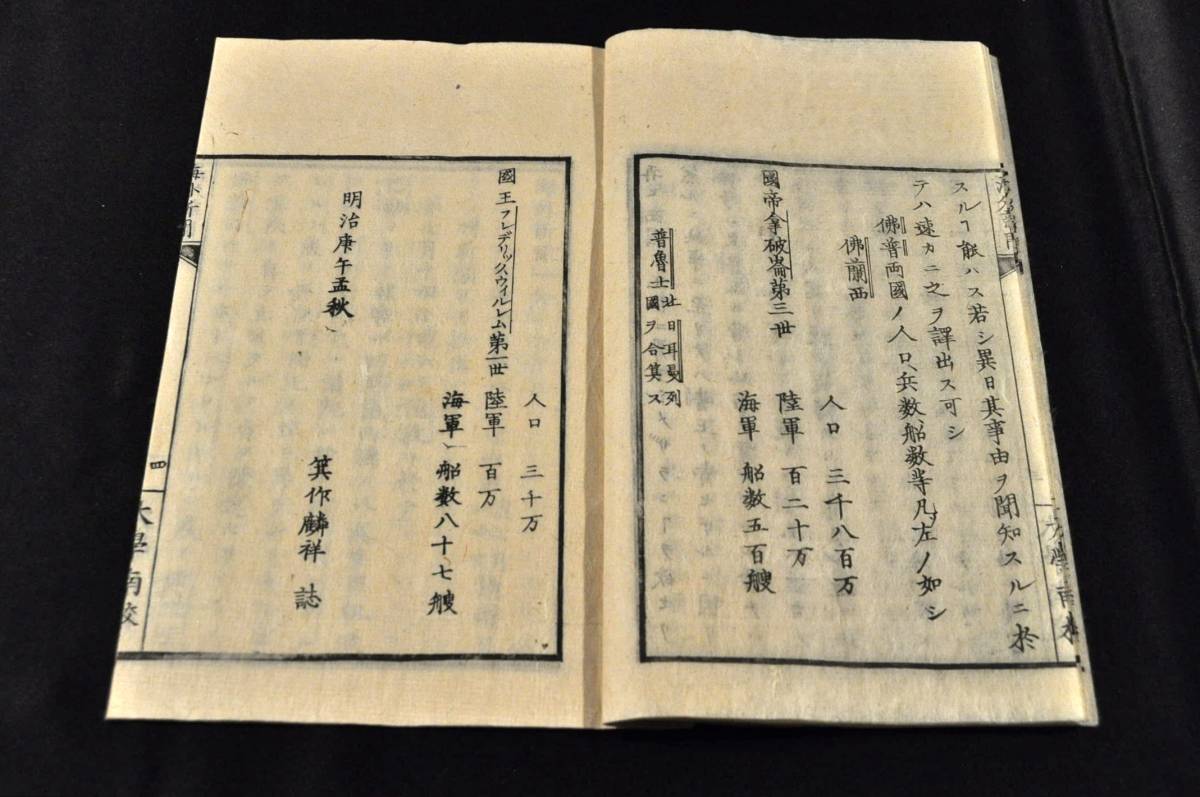 スルヿ能ハス若シ異日其事由ヲ聞知スルニ於
テハ速カニ之ヲ譯出ス可シ
佛普両國ノ人口兵数船数等凡ソ左ノ如シ
佛蘭西
人口 三千八百万
國帝拿破崙第三世 陸軍 百二十万
海軍 船数五百艘
普魯士 北日耳曼列國ヲ合算ス
人口 三千万
國王フレデリックスウィルレム第一世 陸軍 百万
海軍 船数八十七艘
明治庚午孟秋
箕作麟祥 誌
四
大學南校